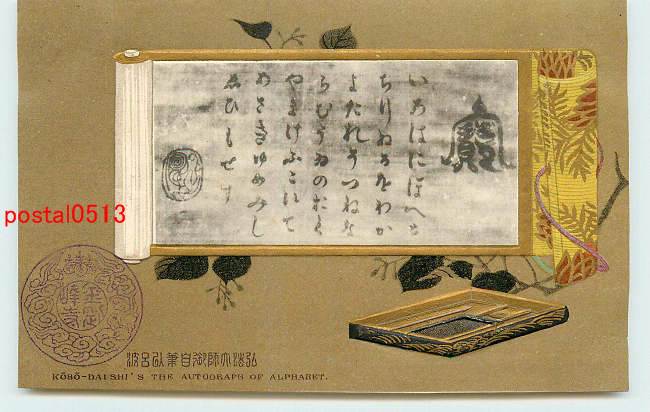 寳
いろはにほへと
ちりぬるをわか
よたれそつねな
らむうゐのおく
やまけふこえて
あさきゆめみし
ゑひもせす
postal0513
弘法大師御自筆以呂波
KŌBŌ-DAISHI'S THE AUTOGRAPH OF ALPHABET.